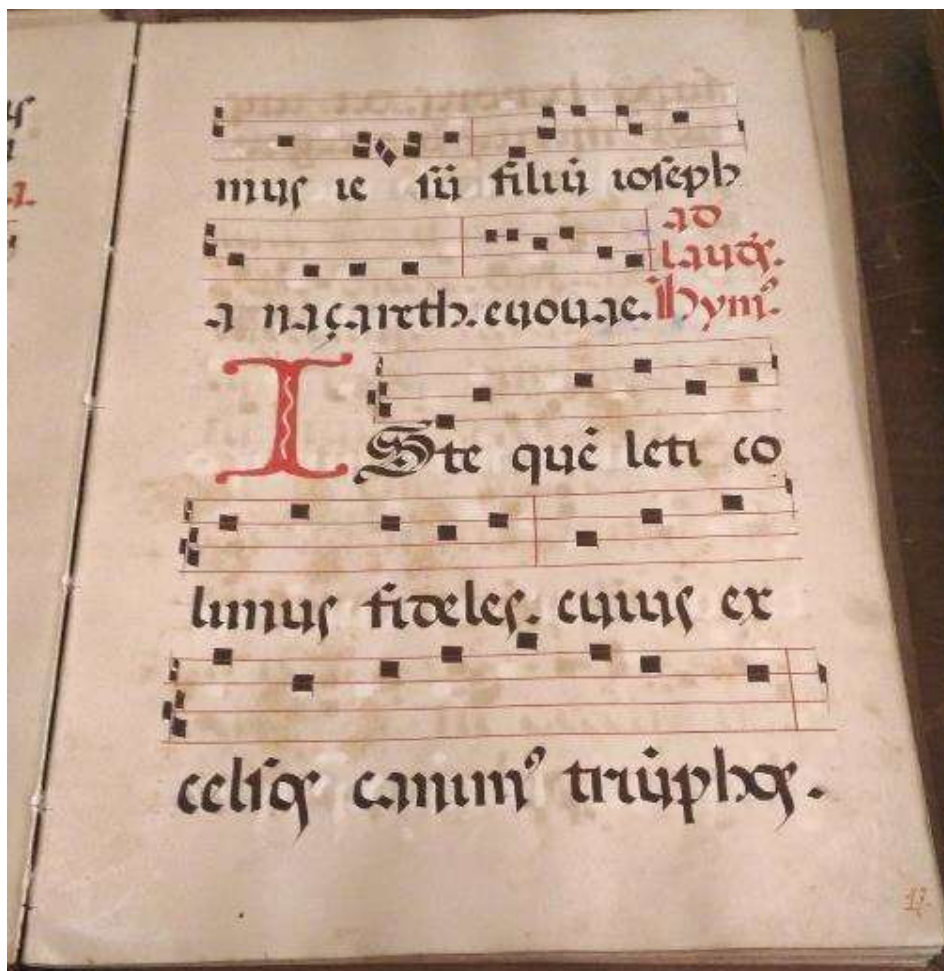 mus ie sū filiū ioseph
ad
laudes.
a naçareth. euouae. Hymꝰ.
ISte quē leti co
limus fideles. cuius ex
celsos canimꝰ triūphos.
17.